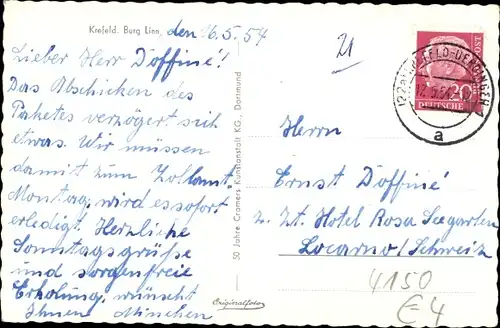 Krefeld. Burg Linn, den 16.5.54
Lieber Herr Doffiné!
Das Abschicken des
Paketes verzögert sich
etwas. Wir müssen
damit zum Zollamt.
Montag, wird es sofort
erledigt. Herzliche
Sonntagsgrüße
und sorgenfreie
Erholung, wünscht
Ihnen München
50 Jahre Cramers Kunstanstalt KG., Dortmund
Originalfoto
21
20
DEUTSCHE POST
a
Herrn
Ernst Doffiné
z. Zt. Hotel Rosa Seegarten
Locarno/Schweiz
4150
€ 4